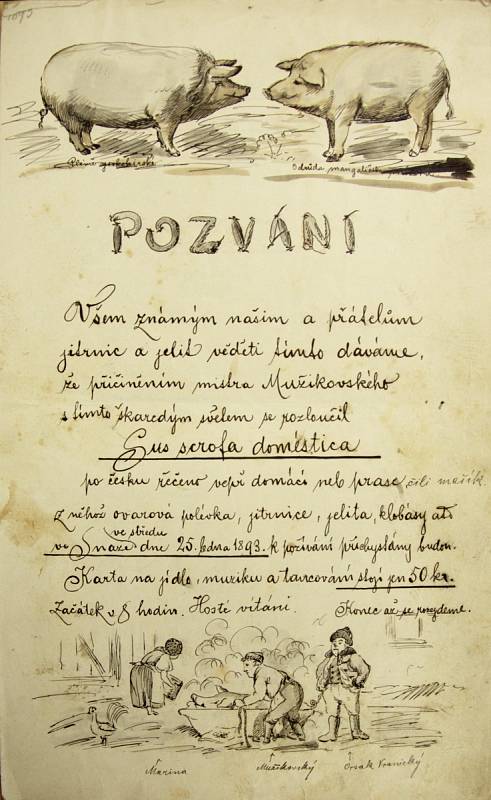 1893
Plémě yorkshirské
Odrůda mangalická
POZVÁNÍ
Všem známým našim a přátelům
jitrnic a jelit věděti tímto dáváme,
že přičiněním mistra Mužikovského
s tímto škaredým světem se rozloučil
Sus scrofa doméstica
po česku řečeno vepř domácí neb prase čili mašík.
Z něhož ovarová polévka, jitrnice, jelita, klobásy atd
ve středu
ve Snaze dne 25. ledna 1893. k požívání přichystány budou.
Karta na jídlo, muziku a tancování stojí jen 50 kr.
Začátek v 8 hodin. Hosté vítáni. Konec až se rozejdeme.
Mařina
Mužikovský
Orsak Vranický